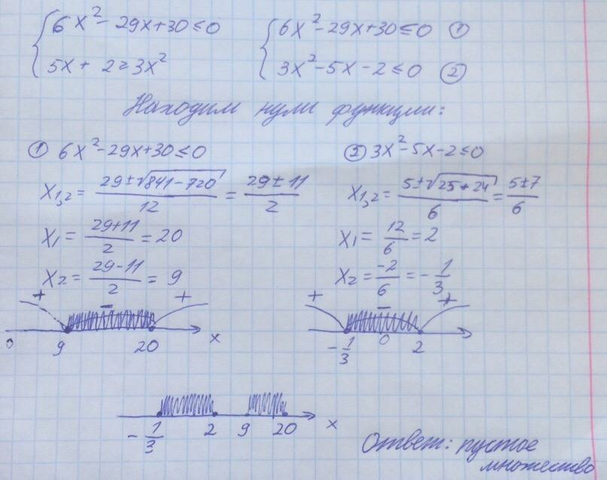 6x² - 29x + 30 ≤ 0
5x + 2 ≥ 3x²
6x² - 29x + 30 ≤ 0 ①
3x² - 5x - 2 ≤ 0 ②
Находим нули функции:
① 6x² - 29x + 30 ≤ 0
x₁,₂ = (29 ± √(841 - 720))/12 = (29 ± 11)/2
x₁ = (29 + 11)/2 = 20
x₂ = (29 - 11)/2 = 9
+ - +
0 9 20 x
② 3x² - 5x - 2 ≤ 0
x₁,₂ = (5 ± √(25 + 24))/6 = (5 ± 7)/6
x₁ = 12/6 = 2
x₂ = -2/6 = -1/3
+ - +
-1/3 0 2
-1/3 2 9 20 x
Ответ: пустое
множество